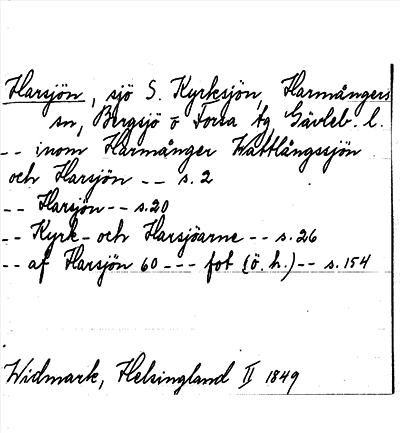 Harsjön, sjö S. Kyrksjön, Harmångers
sn, Bergsjö o Forsa tg Gävleb. l.
-- inom Harmånger Vattlångssjön
och Harsjön -- s. 2
-- Harsjön -- s. 20
-- Kyrk- och Harsjöarne -- s. 26
-- af Harsjön 60 --- fot (ö. h.) -- s. 154
Widmark, Helsingland II 1849